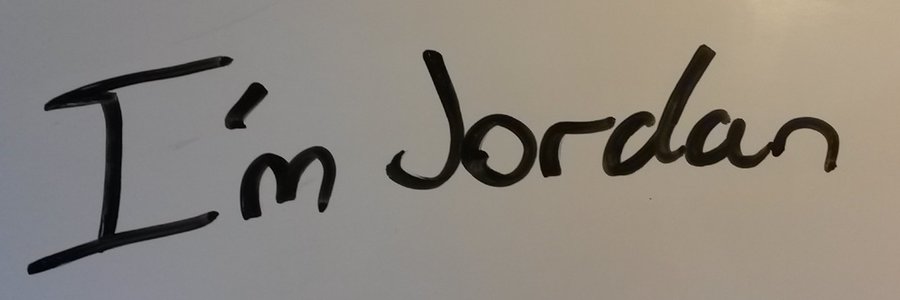 I'm Jordan